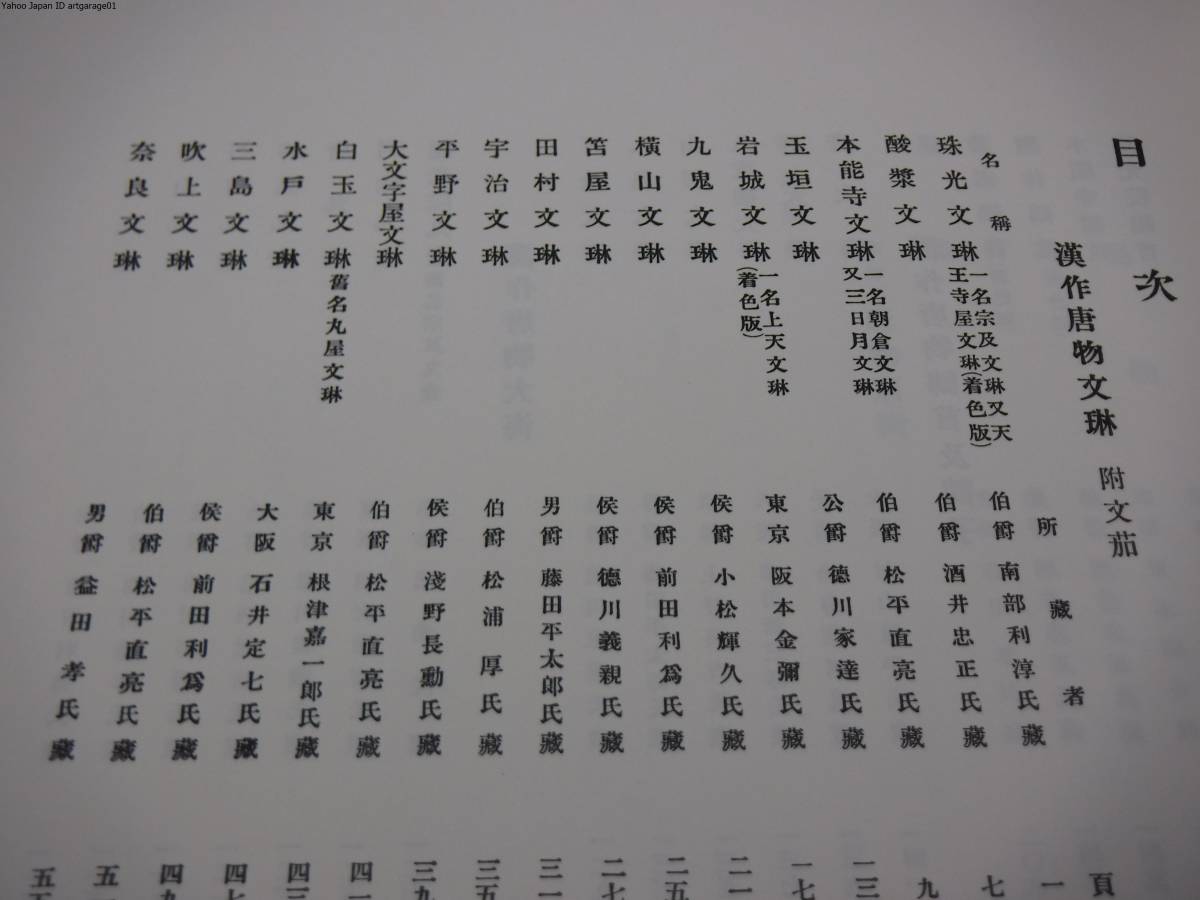 Yahoo Japan ID artgarage01
目次
漢作唐物文琳 附文茄
名稱 所藏者 頁
珠光文琳 一名宗及文琳又天王寺屋文琳(着色版) 伯爵 南部利淳氏藏 一
酸漿文琳 伯爵 酒井忠正氏藏 七
本能寺文琳 一名朝倉文琳又三日月文琳 伯爵 松平直亮氏藏 九
玉垣文琳 公爵 德川家達氏藏 一三
岩城文琳 一名上天文琳(着色版) 東京 阪本金彌氏藏 一七
九鬼文琳 侯爵 小松輝久氏藏 二一
橫山文琳 侯爵 前田利爲氏藏 二五
笘屋文琳 侯爵 德川義親氏藏 二七
田村文琳 男爵 藤田平太郎氏藏 三一
宇治文琳 伯爵 松浦厚氏藏 三五
平野文琳 侯爵 淺野長勳氏藏 三九
大文字屋文琳 伯爵 松平直亮氏藏 四一
白玉文琳 舊名丸屋文琳 東京 根津嘉一郎氏藏 四三
水戶文琳 大阪 石井定七氏藏 四七
三島文琳 侯爵 前田利爲氏藏 四九
吹上文琳 伯爵 松平直亮氏藏 五
奈良文琳 男爵 益田孝氏藏 五